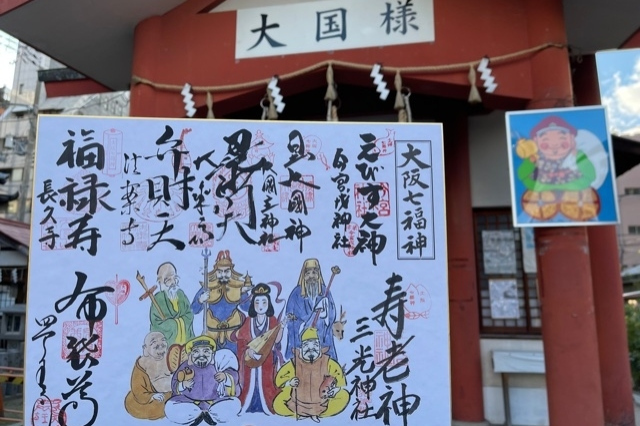 大国様
大阪七福神
えびす大神
今宮戎神社
大国神
大国主神社
毘沙門天
大乗坊
弁財天
法案寺
福禄寿
長久寺
寿老神
三光神社
布袋尊
四天王寺